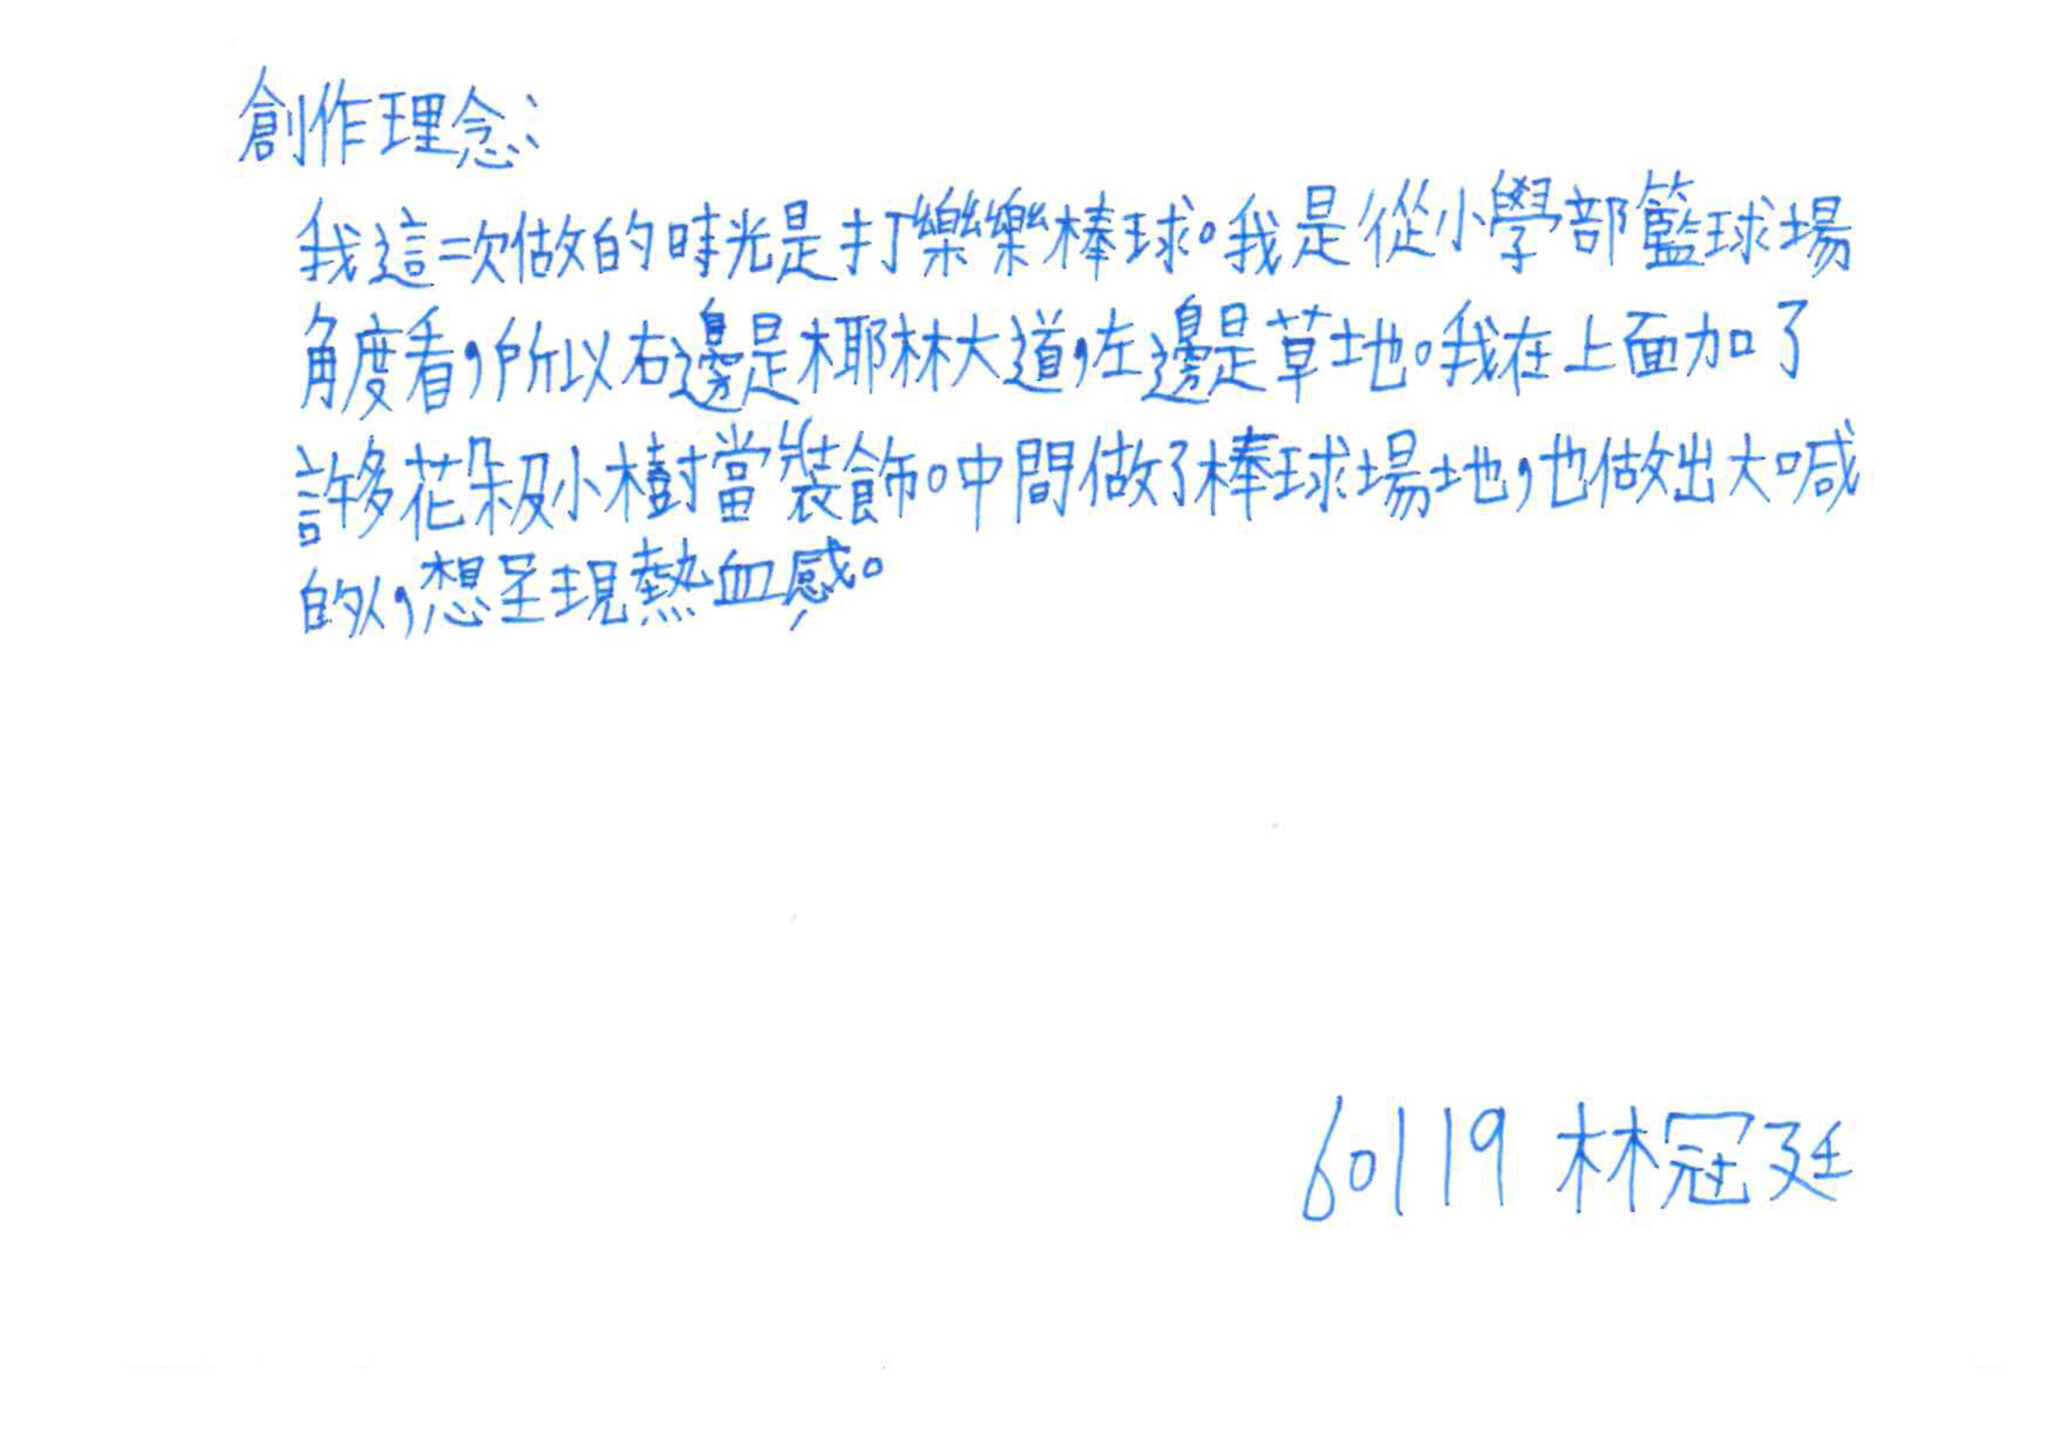 創作理念:
我這次做的時光是打樂樂棒球。我是從小學部籃球場
角度看,所以右邊是椰林大道,左邊是草地。我在上面加了
許多花朵及小樹當裝飾。中間做了棒球場地,也做出大喊
的人,想呈現熱血感。
60119 林冠廷